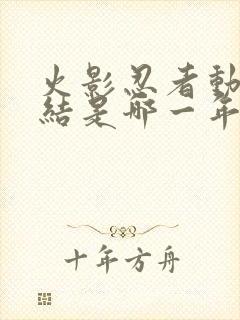 火影忍者動
結是哪一年
十年方舟